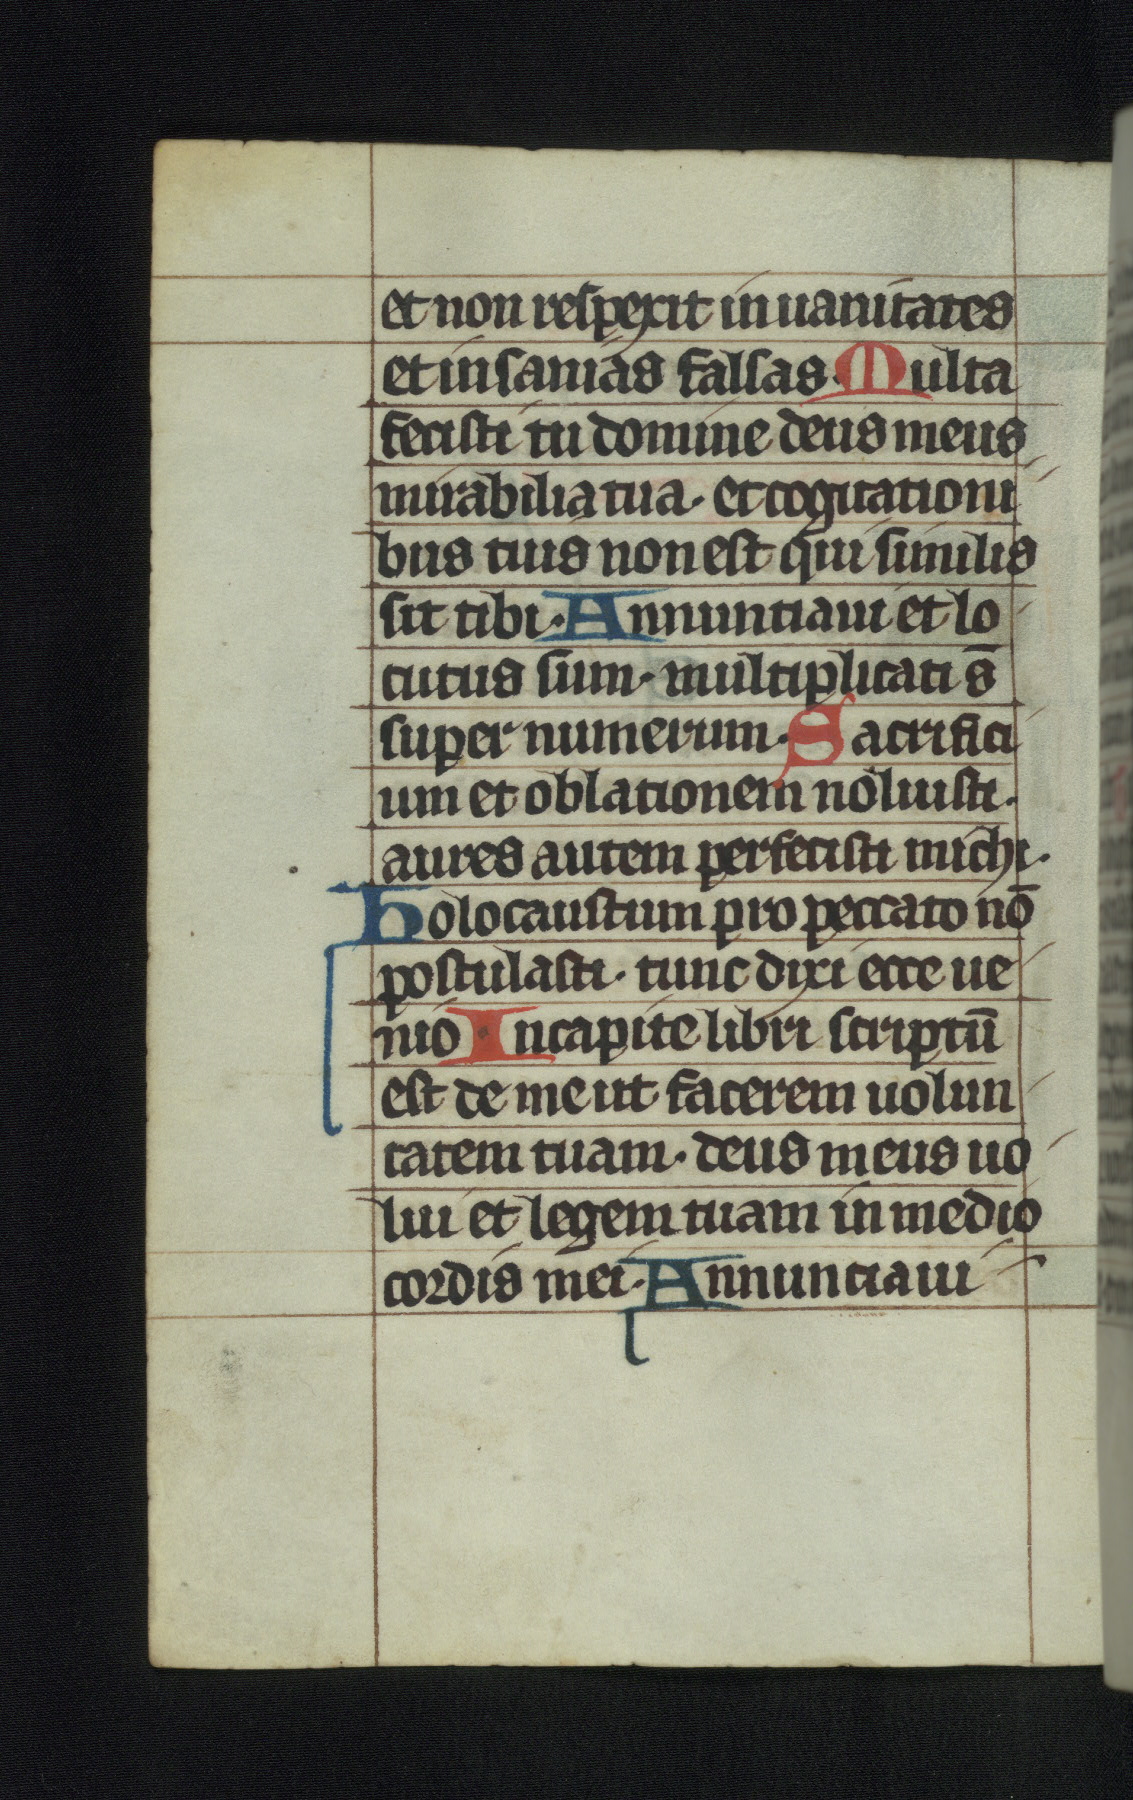 et non respexit in uanitates
et insanias falsas· Multa
fecisti tu domine deus meus
mirabilia tua· et cogitationi
bus tuis non est qui similis
sit tibi· Annuntiaui et lo
cutus sum· multiplicati s̄
super numerum· Sacrifici
um et oblationem noluisti·
aures autem perfecisti michi·
Holocaustum pro peccato nō
postulasti· tunc dixi ecce ue
nio In capite libri scriptū
est de me ut facerem uolun
tatem tuam· deus meus uo
lui et legem tuam in medio
cordis mei· Annuntiaui